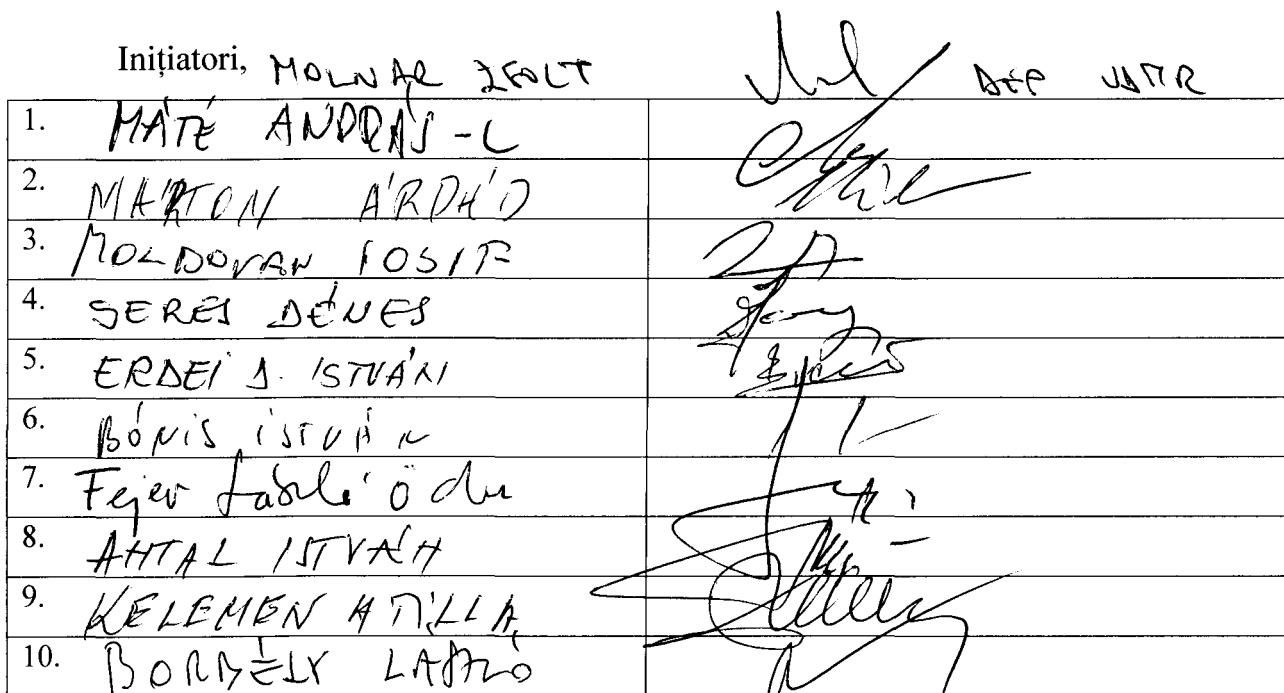 Inițiatori, MOLNAR ZSOLT DEP UDMR
1. MÁTÉ ANDRÁS-L
2. MARTON ÁRPÁD
3. MOLDOVAN IOSIF
4. SERES DÉNES
5. ERDEI D. ISTVÁN
6. BÓNIS ISTVÁN
7. Fejér László Ödön
8. ANTAL ISTVÁN
9. KELEMEN ATILLA
10. BORBÉLY LÁSZLÓ